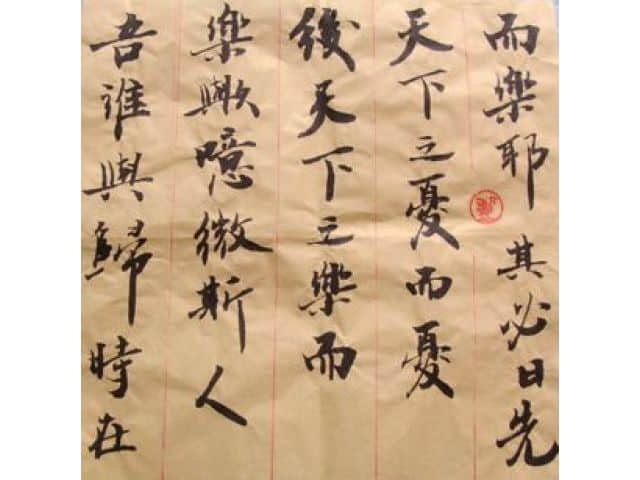 而樂耶其必曰先
天下之憂而憂
後天下之樂而
樂歟噫微斯人
吾誰與歸時在